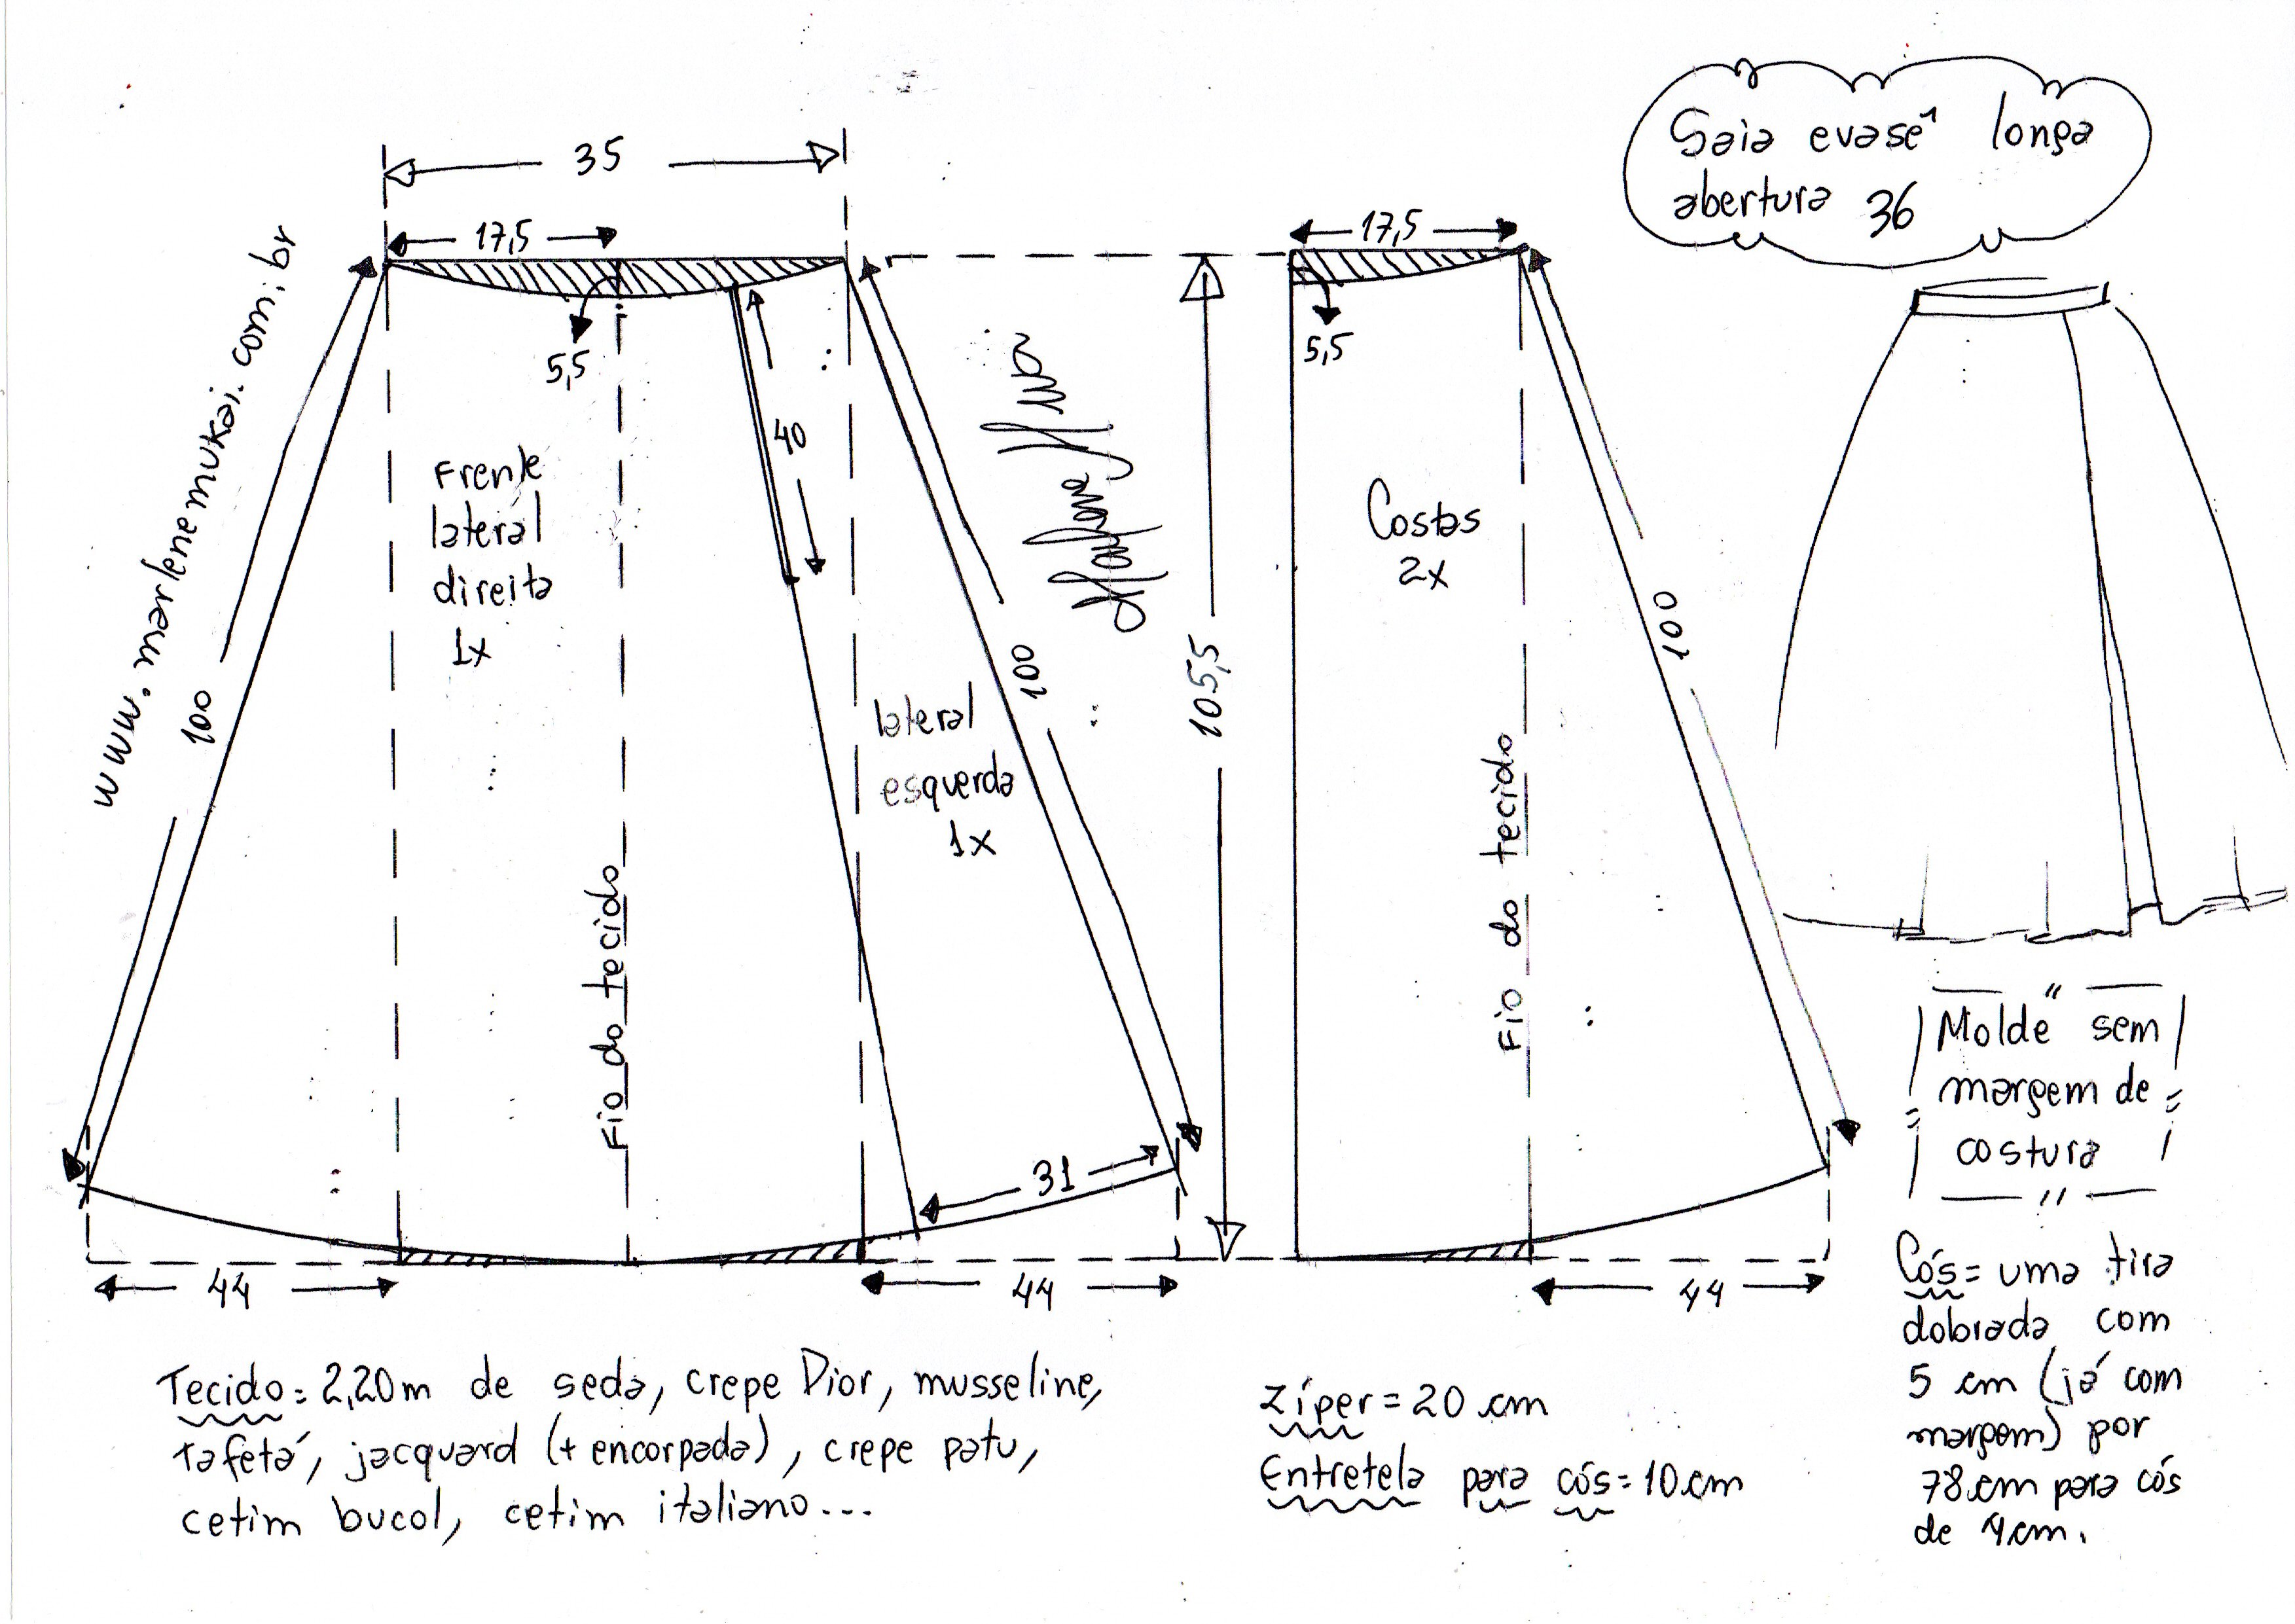 Saia evasê longa
abertura 36
35
17,5
5,5
www.marlenemukai.com.br
100
Frente
lateral
direita
1x
40
Fio do tecido
lateral
esquerda
1x
100
31
44
44
105,5
17,5
5,5
Costas
2x
Fio do tecido
100
44
"Molde sem
margem de
costura"
Tecido: 2,20m de seda, crepe Dior, musseline,
tafetá, jacquard (+ encorpada), crepe patu,
cetim bucol, cetim italiano...
Zíper = 20 cm
Entretela para cós = 10 cm
Cós = uma tira
dobrada com
5 cm (já com
margem) por
78 cm para cós
de 4 cm.